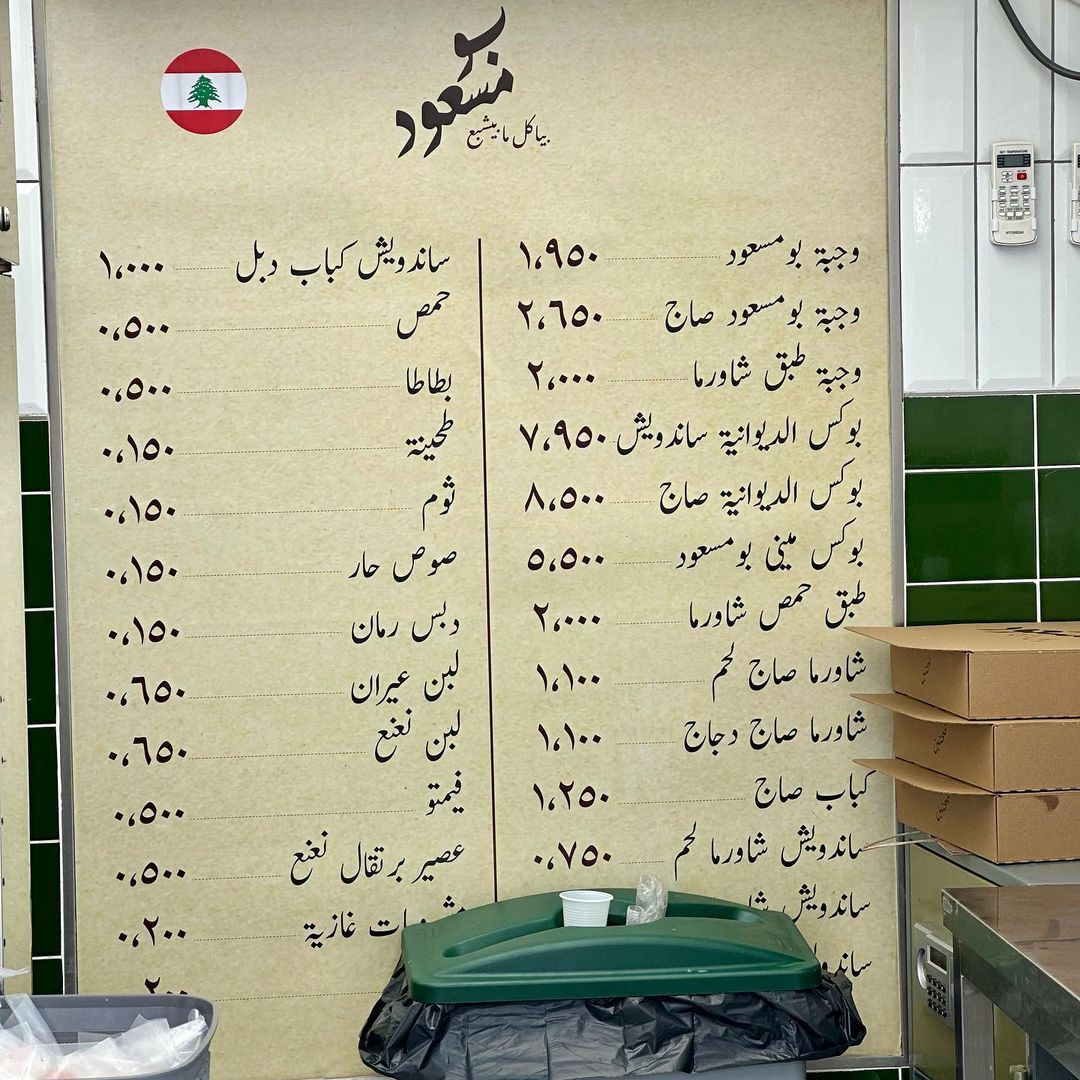 بو مسعود
بياكل ما بيشبع
وجبة بومسعود ١،٩٥٠
وجبة بومسعود صاج ٢،٦٥٠
وجبة طبق شاورما ٢،٠٠٠
بوكس الديوانية ساندويش ٧،٩٥٠
بوكس الديوانية صاج ٨،٥٠٠
بوكس ميني بومسعود ٥،٥٠٠
طبق حمص شاورما ٢،٠٠٠
شاورما صاج لحم ١،١٠٠
شاورما صاج دجاج ١،١٠٠
كباب صاج ١،٢٥٠
ساندويش شاورما لحم ٠،٧٥٠
ساندويش
ساندويش كباب دبل ١،٠٠٠
حمص ٠،٥٠٠
بطاطا ٠،٥٠٠
طحينة ٠،١٥٠
ثوم ٠،١٥٠
صوص حار ٠،١٥٠
دبس رمان ٠،١٥٠
لبن عيران ٠،٦٥٠
لبن نعنع ٠،٦٥٠
فيمتو ٠،٥٠٠
عصير برتقال نعنع ٠،٥٠٠
غازية ٠،٢٠٠
SET TEMPERATURE
HYUNDAI